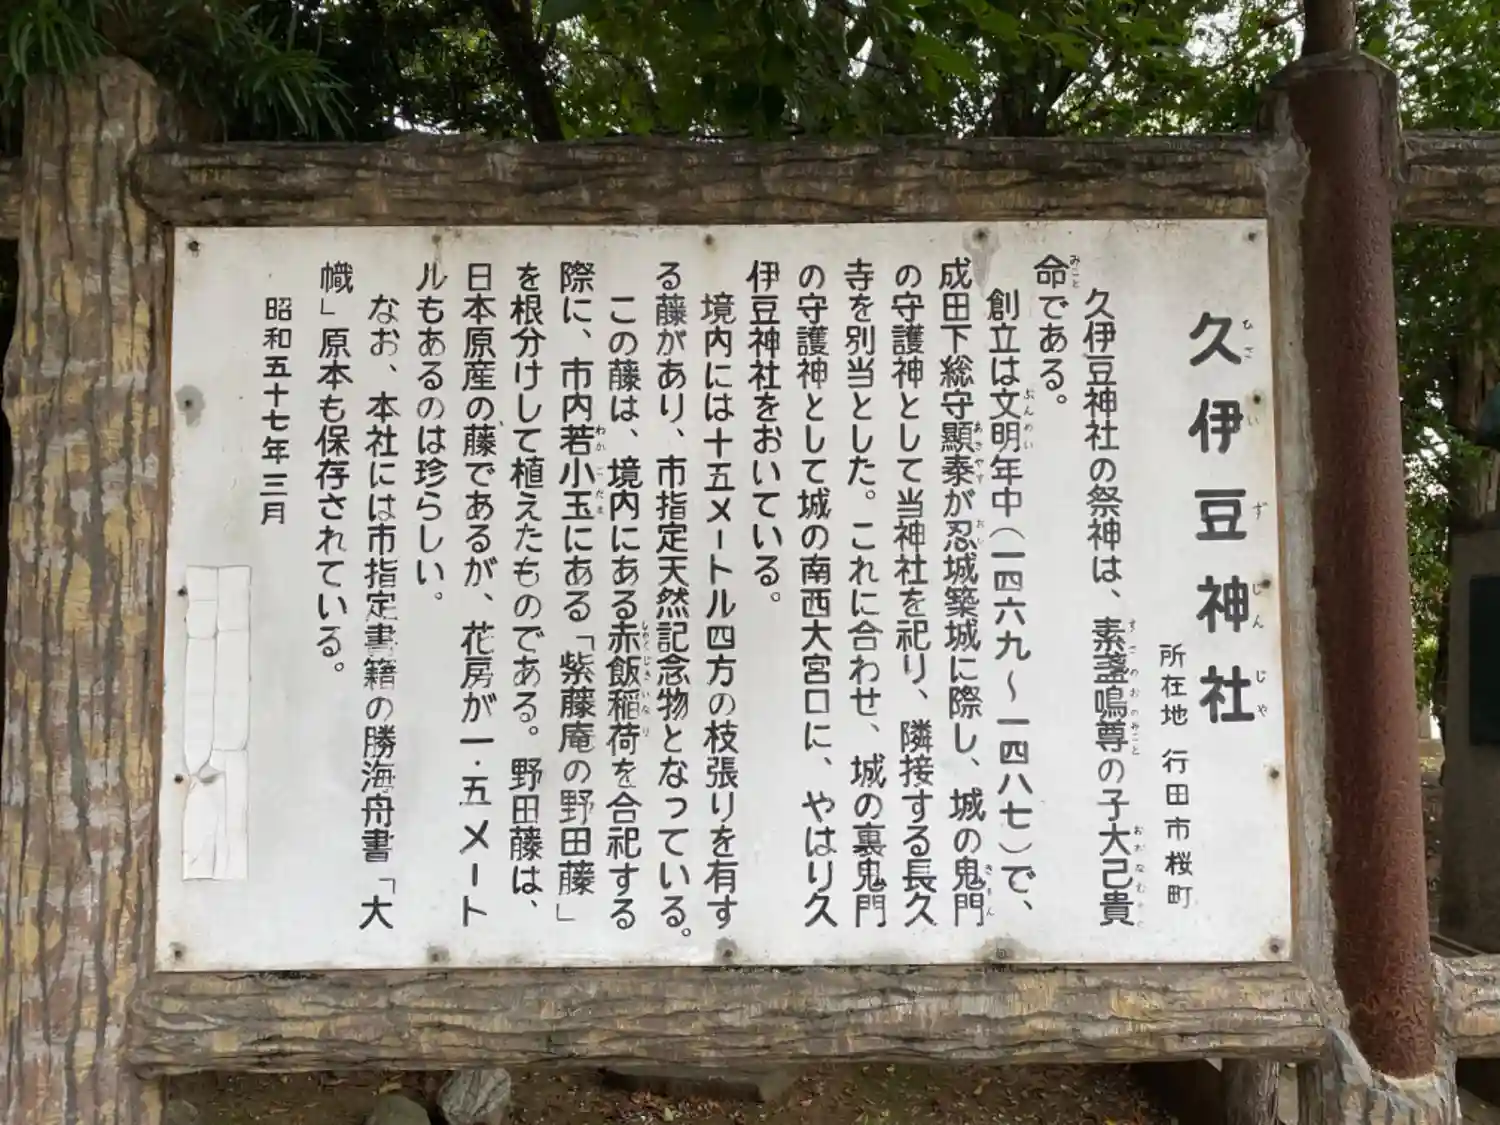 久伊豆神社
所在地 行田市桜町
久伊豆神社の祭神は、素盞鳴尊の子大己貴
命である。
創立は文明年中(一四六九〜一四八七)で、
成田下総守顕泰が忍城築城に際し、城の鬼門
の守護神として当神社を祀り、隣接する長久
寺を別当とした。これに合わせ、城の裏鬼門
の守護神として城の南西大宮口に、やはり久
伊豆神社をおいている。
境内には十五メートル四方の枝張りを有す
る藤があり、市指定天然記念物となっている。
この藤は、境内にある赤飯稲荷を合祀する
際に、市内若小玉にある「紫藤庵の野田藤」
を根分けして植えたものである。野田藤は、
日本原産の藤であるが、花房が一・五メート
ルもあるのは珍らしい。
なお、本社には市指定書籍の勝海舟書「大
幟」原本も保存されている。
昭和五十七年三月